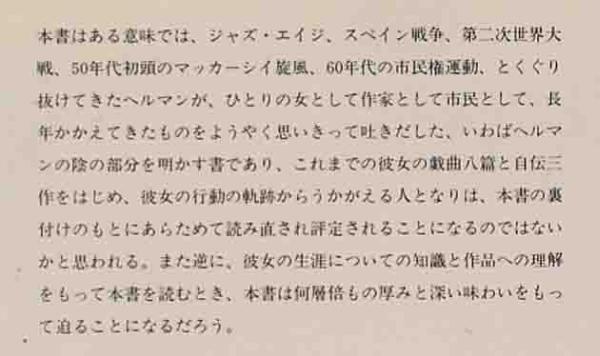 本書はある意味では、ジャズ・エイジ、スペイン戦争、第二次世界大
戦、50年代初頭のマッカーシイ旋風、60年代の市民権運動、とくぐり
抜けてきたヘルマンが、ひとりの女として作家として市民として、長
年かかえてきたものをようやく思いきって吐きだした、いわばヘルマ
ンの陰の部分を明かす書であり、これまでの彼女の戯曲八篇と自伝三
作をはじめ、彼女の行動の軌跡からうかがえる人となりは、本書の裏
付けのもとにあらためて読み直され評定されることになるのではない
かと思われる。また逆に、彼女の生涯についての知識と作品への理解
をもって本書を読むとき、本書は何層倍もの厚みと深い味わいをもっ
て迫ることになるだろう。